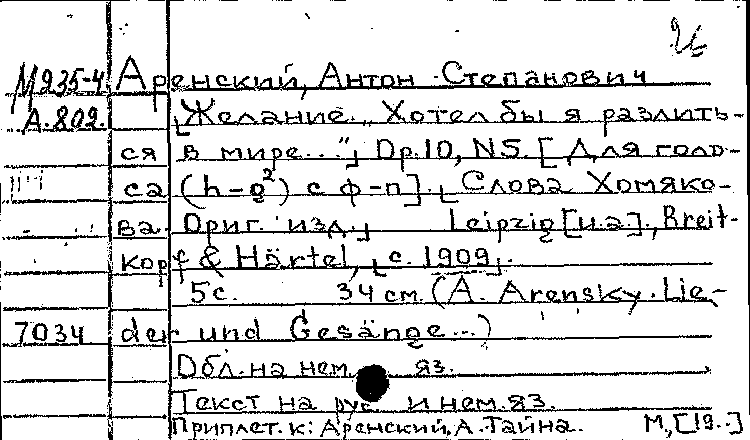 М935-4 Аренский, Антон Степанович
А.802. [Желание. „Хотел бы я разлить-
ся в мире...“], Op.10, N5. [Для голо-
са (h-g²) с ф-п]. [Слова Хомяко-
ва. Ориг. изд.] Leipzig [u.a.], Breit-
kopf & Härtel, [с. 1909].
5с. 34 см. (A. Arensky. Lie-
7034 der und Gesänge...)
Обл. на нем. яз.
Текст на рус. и нем. яз.
Приплет. к: Аренский, А. Тайна. М, [19..]